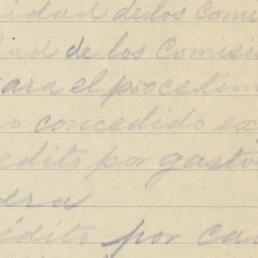 nidad de los comi
dad de los Comisi
para el procedim
no concedido ex
edito por gasto
era
édito por ca